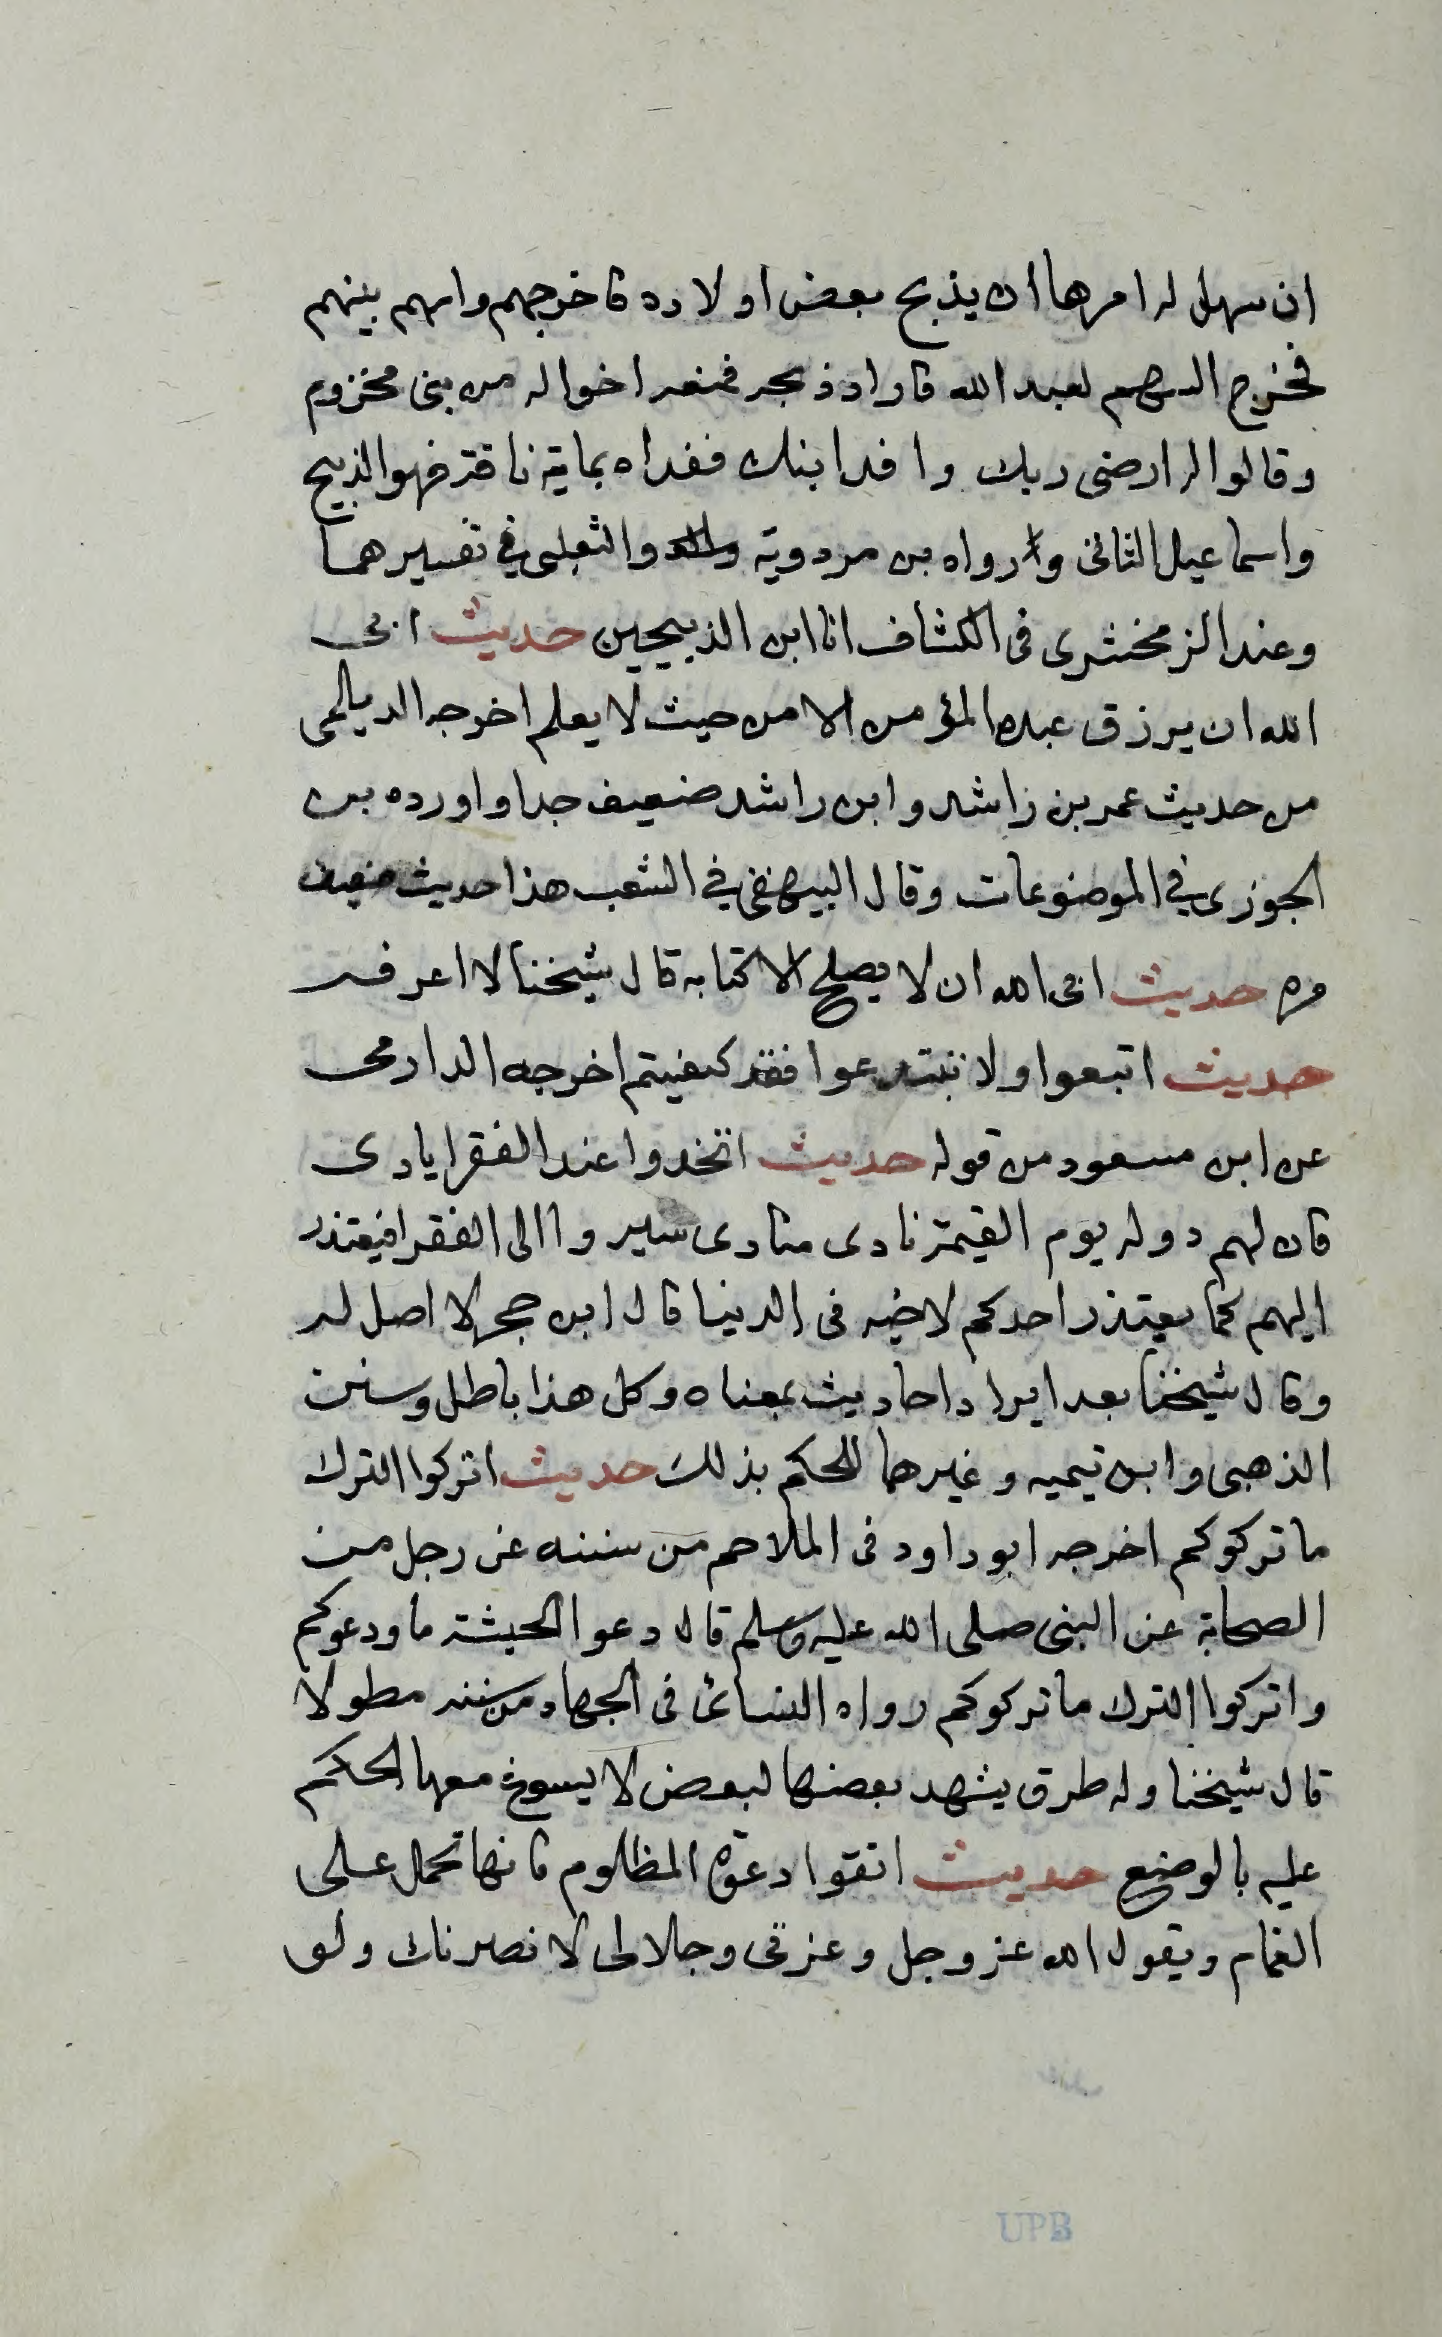 ان سهل له امرها ان يذبح بعض اولاده فاخرجهم واسهم بينهم
فخرج السهم لعبد الله فاراد ذبحه فمنعه اخواله من بنى مخزوم
وقالوا له ارضى ربك وافد ابنك ففداه بماية ناقة فهو الذبيح
واسماعيل الثانى رواه بن مردوية والثعلبى فى تفسيرهما
وعند الزمخشرى فى الكشاف انا ابن الذبيحين حديث ابى
الله ان يرزق عبده المؤمن الا من حيث لا يعلم اخرجه الديلمى
من حديث عمر بن زاشد وابن راشد ضعيف جدا واورده بن
الجوزى فى الموضوعات وقال البيهقى فى الشعب هذا حديث ضعيف
مره حديث ابى الله ان لا يصلح الا كتابه قال شيخنا لا اعرفه
حديث اتبعوا ولا تبتدعوا فقد كفيتم اخرجه الدارمى
عن ابن مسعود من قوله حديث اتخدوا عند الفقرا يادى
فان لهم دوله يوم القيمة نادى منادى سيروا الى الفقرا فيعتذر
اليهم كما يعتذر احدكم لاخيه فى الدينا قال ابن حجر لا اصل له
وقال شيخنا بعد ايراد احاديث بمعناه وكل هذا باطل وسبق
الذهبى وابن تيميه وغيرهما للحكم بذلك حديث اتركوا الترك
ما تركوكم اخرجه ابو داود فى الملاحم من سننه عن رجل من
الصحابة عن النبى صلى الله عليه وسلم قال دعوا الحبشة ما ودعوكم
واتركوا الترك ما تركوكم رواه النسائ فى الجهاد من سننه مطولا
قال شيخنا وله طرق يشهد بعضها لبعض لا يسوغ معها الحكم
عليه بالوضع حديث اتقوا دعوة المظلوم فانها تحمل على
الغمام ويقول الله عز وجل وعزتى وجلالى لانصرناك ولو
UPB